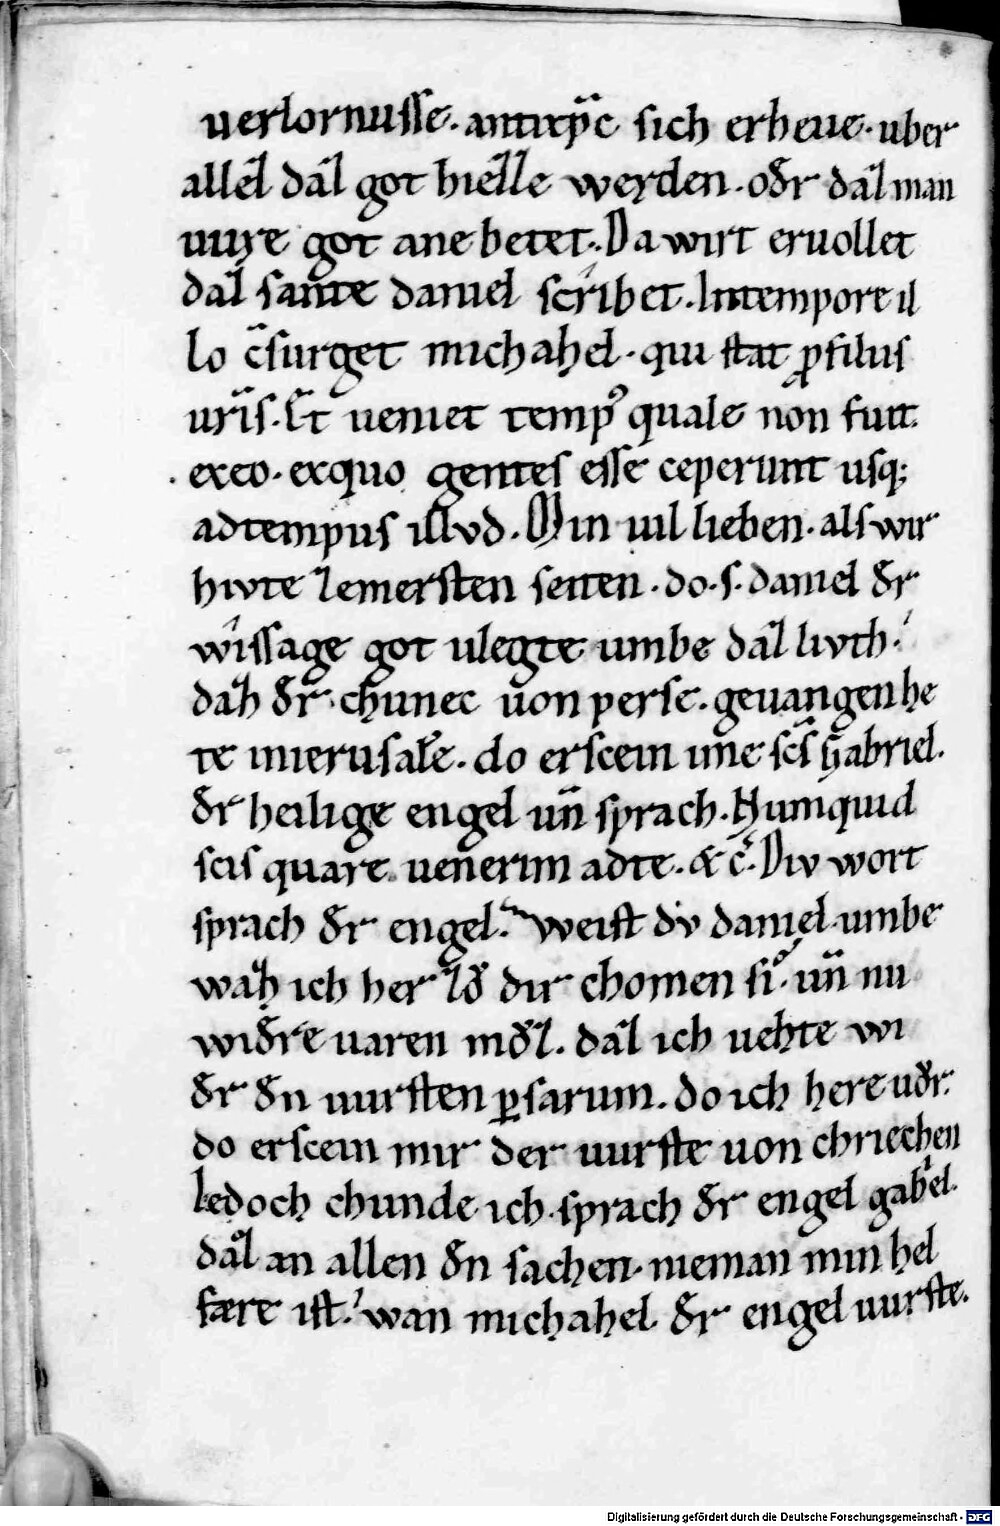 uerlornusse. antixp̄c sich erheue. uber
allez daz got hiezze werden. odr daz man
uure got anebetet. Da wirt eruollet
daz sante daniel scribet. Intempore il
lo c̄surget michahel. qui stat ꝓ filiis
uris. Et ueniet temp᷒ quale non fuit
exeo. exquo gentes esse ceperunt usq;
adtempus illvd. Min uil lieben. als wir
hivte zemersten seiten. do .s. daniel dr
wissage got ulegte umbe daz livth.
daz dr chunec uon perse. geuangen he
te inierusalē. do erscein ime scs̄ Gabriel.
dr heilige engel un̄ sprach. Numquid
scis quare uenerim adte. & c̄. Div wort
sprach dr engel. weist dv daniel umbe
waz ich her zů dir chomen si. un̄ nu
widre uaren můz. daz ich uehte wi
dr dn uursten ꝑsarum. do ich here uůr.
do erscein mir der uurste uon chriechen
Iedoch chunde ich sprach dr engel gabriel.
daz an allen dn sachen. nieman min hel
fære ist. wan michahel dr engel uurste.
Digitalisierung gefördert durch die Deutsche Forschungsgemeinschaft - DFG